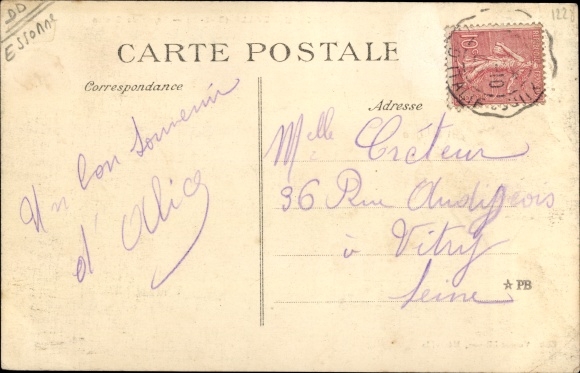 DD
Essonne
1228
CARTE POSTALE
Correspondance
Adresse
Un bon souvenir
d'Alice
Melle Créteur
36 Rue
à Vitry
Seine
☆ PB
10